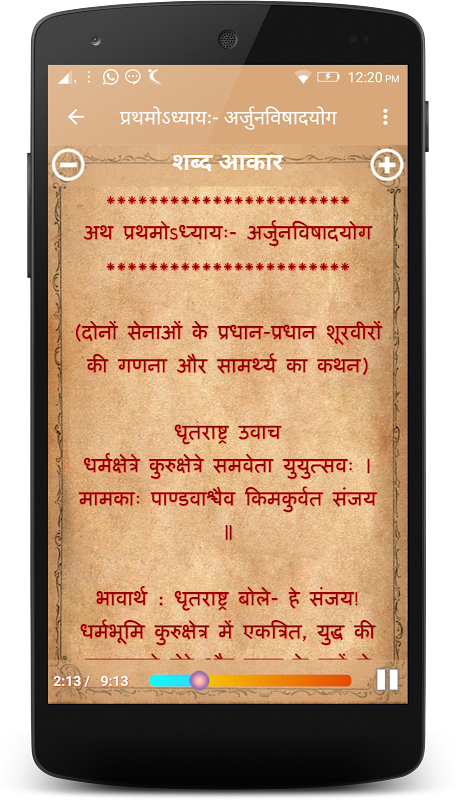 12:20 PM
प्रथमोऽध्यायः- अर्जुनविषादयोग
शब्द आकार
***********************
अथ प्रथमोऽध्यायः- अर्जुनविषादयोग
***********************
(दोनों सेनाओं के प्रधान-प्रधान शूरवीरों
की गणना और सामर्थ्य का कथन)
धृतराष्ट्र उवाच
धर्मक्षेत्रे कुरुक्षेत्रे समवेता युयुत्सवः ।
मामकाः पाण्डवाश्चैव किमकुर्वत संजय
॥
भावार्थ : धृतराष्ट्र बोले- हे संजय!
धर्मभूमि कुरुक्षेत्र में एकत्रित, युद्ध की
2:13 / 9:13